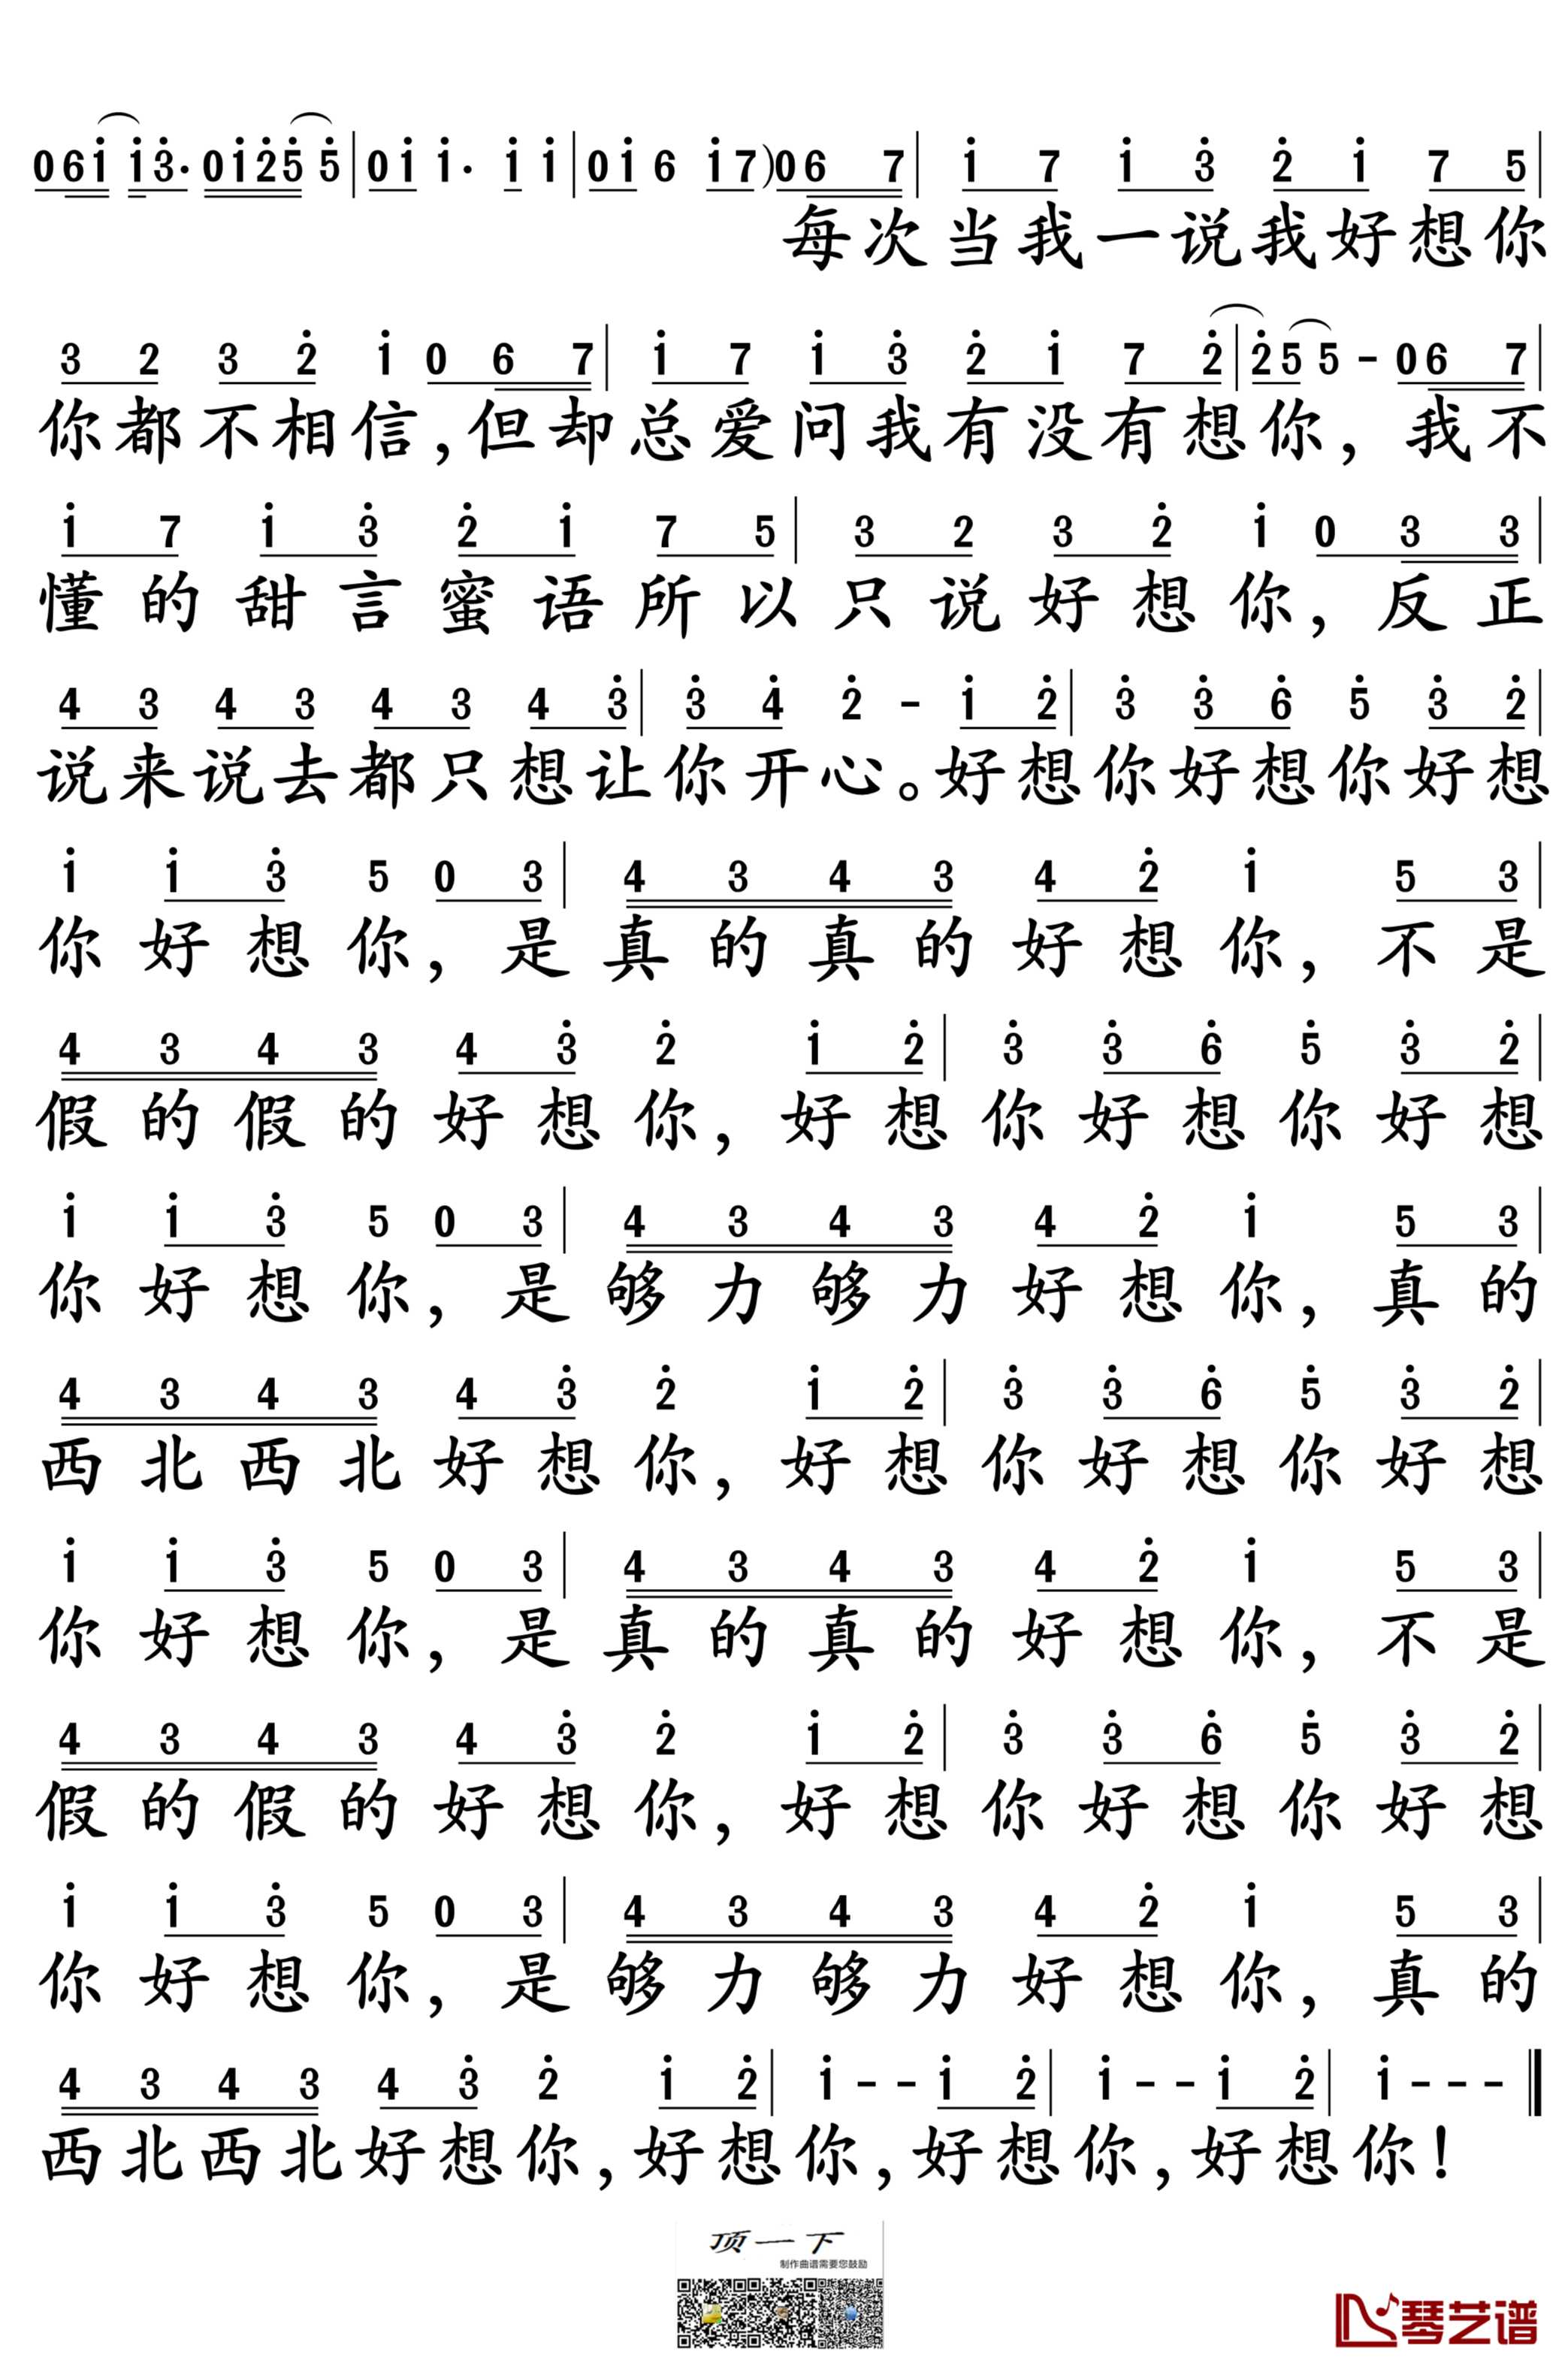 0 6 i i 3· 0 i 2 5 5 | 0 i i· i i | 0 i 6 i 7 ) 0 6 7 | i 7 i 3 2 i 7 5 |
每次当我一说我好想你
3 2 3 2 i 0 6 7 | i 7 i 3 2 i 7 2 | 2 5 5 - 0 6 7 |
你都不相信,但却总爱问我有没有想你,我不
i 7 i 3 2 i 7 5 | 3 2 3 2 i 0 3 3 |
懂的甜言蜜语所以只说好想你,反正
4 3 4 3 4 3 4 3 | 3 4 2 - i 2 | 3 3 6 5 3 2 |
说来说去都只想让你开心。好想你好想你好想
i i 3 5 0 3 | 4 3 4 3 4 2 i 5 3 |
你好想你,是真的真的好想你,不是
4 3 4 3 4 3 2 i 2 | 3 3 6 5 3 2 |
假的假的好想你,好想你好想你好想
i i 3 5 0 3 | 4 3 4 3 4 2 i 5 3 |
你好想你,是够力够力好想你,真的
4 3 4 3 4 3 2 i 2 | 3 3 6 5 3 2 |
西北西北好想你,好想你好想你好想
i i 3 5 0 3 | 4 3 4 3 4 2 i 5 3 |
你好想你,是真的真的好想你,不是
4 3 4 3 4 3 2 i 2 | 3 3 6 5 3 2 |
假的假的好想你,好想你好想你好想
i i 3 5 0 3 | 4 3 4 3 4 2 i 5 3 |
你好想你,是够力够力好想你,真的
4 3 4 3 4 3 2 i 2 | i - - i 2 | i - - i 2 | i - - - ‖
西北西北好想你,好想你,好想你,好想你!
顶一下
制作曲谱需要您鼓励
琴艺谱